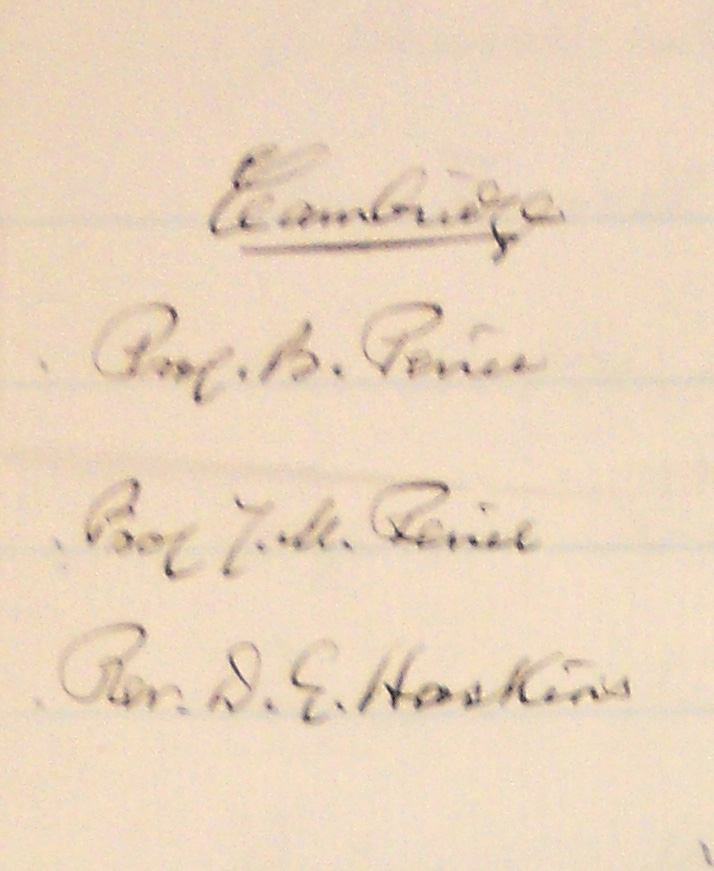 Cambridge
Prof. B. Peirce
Prof J. M. Peirce
Rev. D. G. Haskins